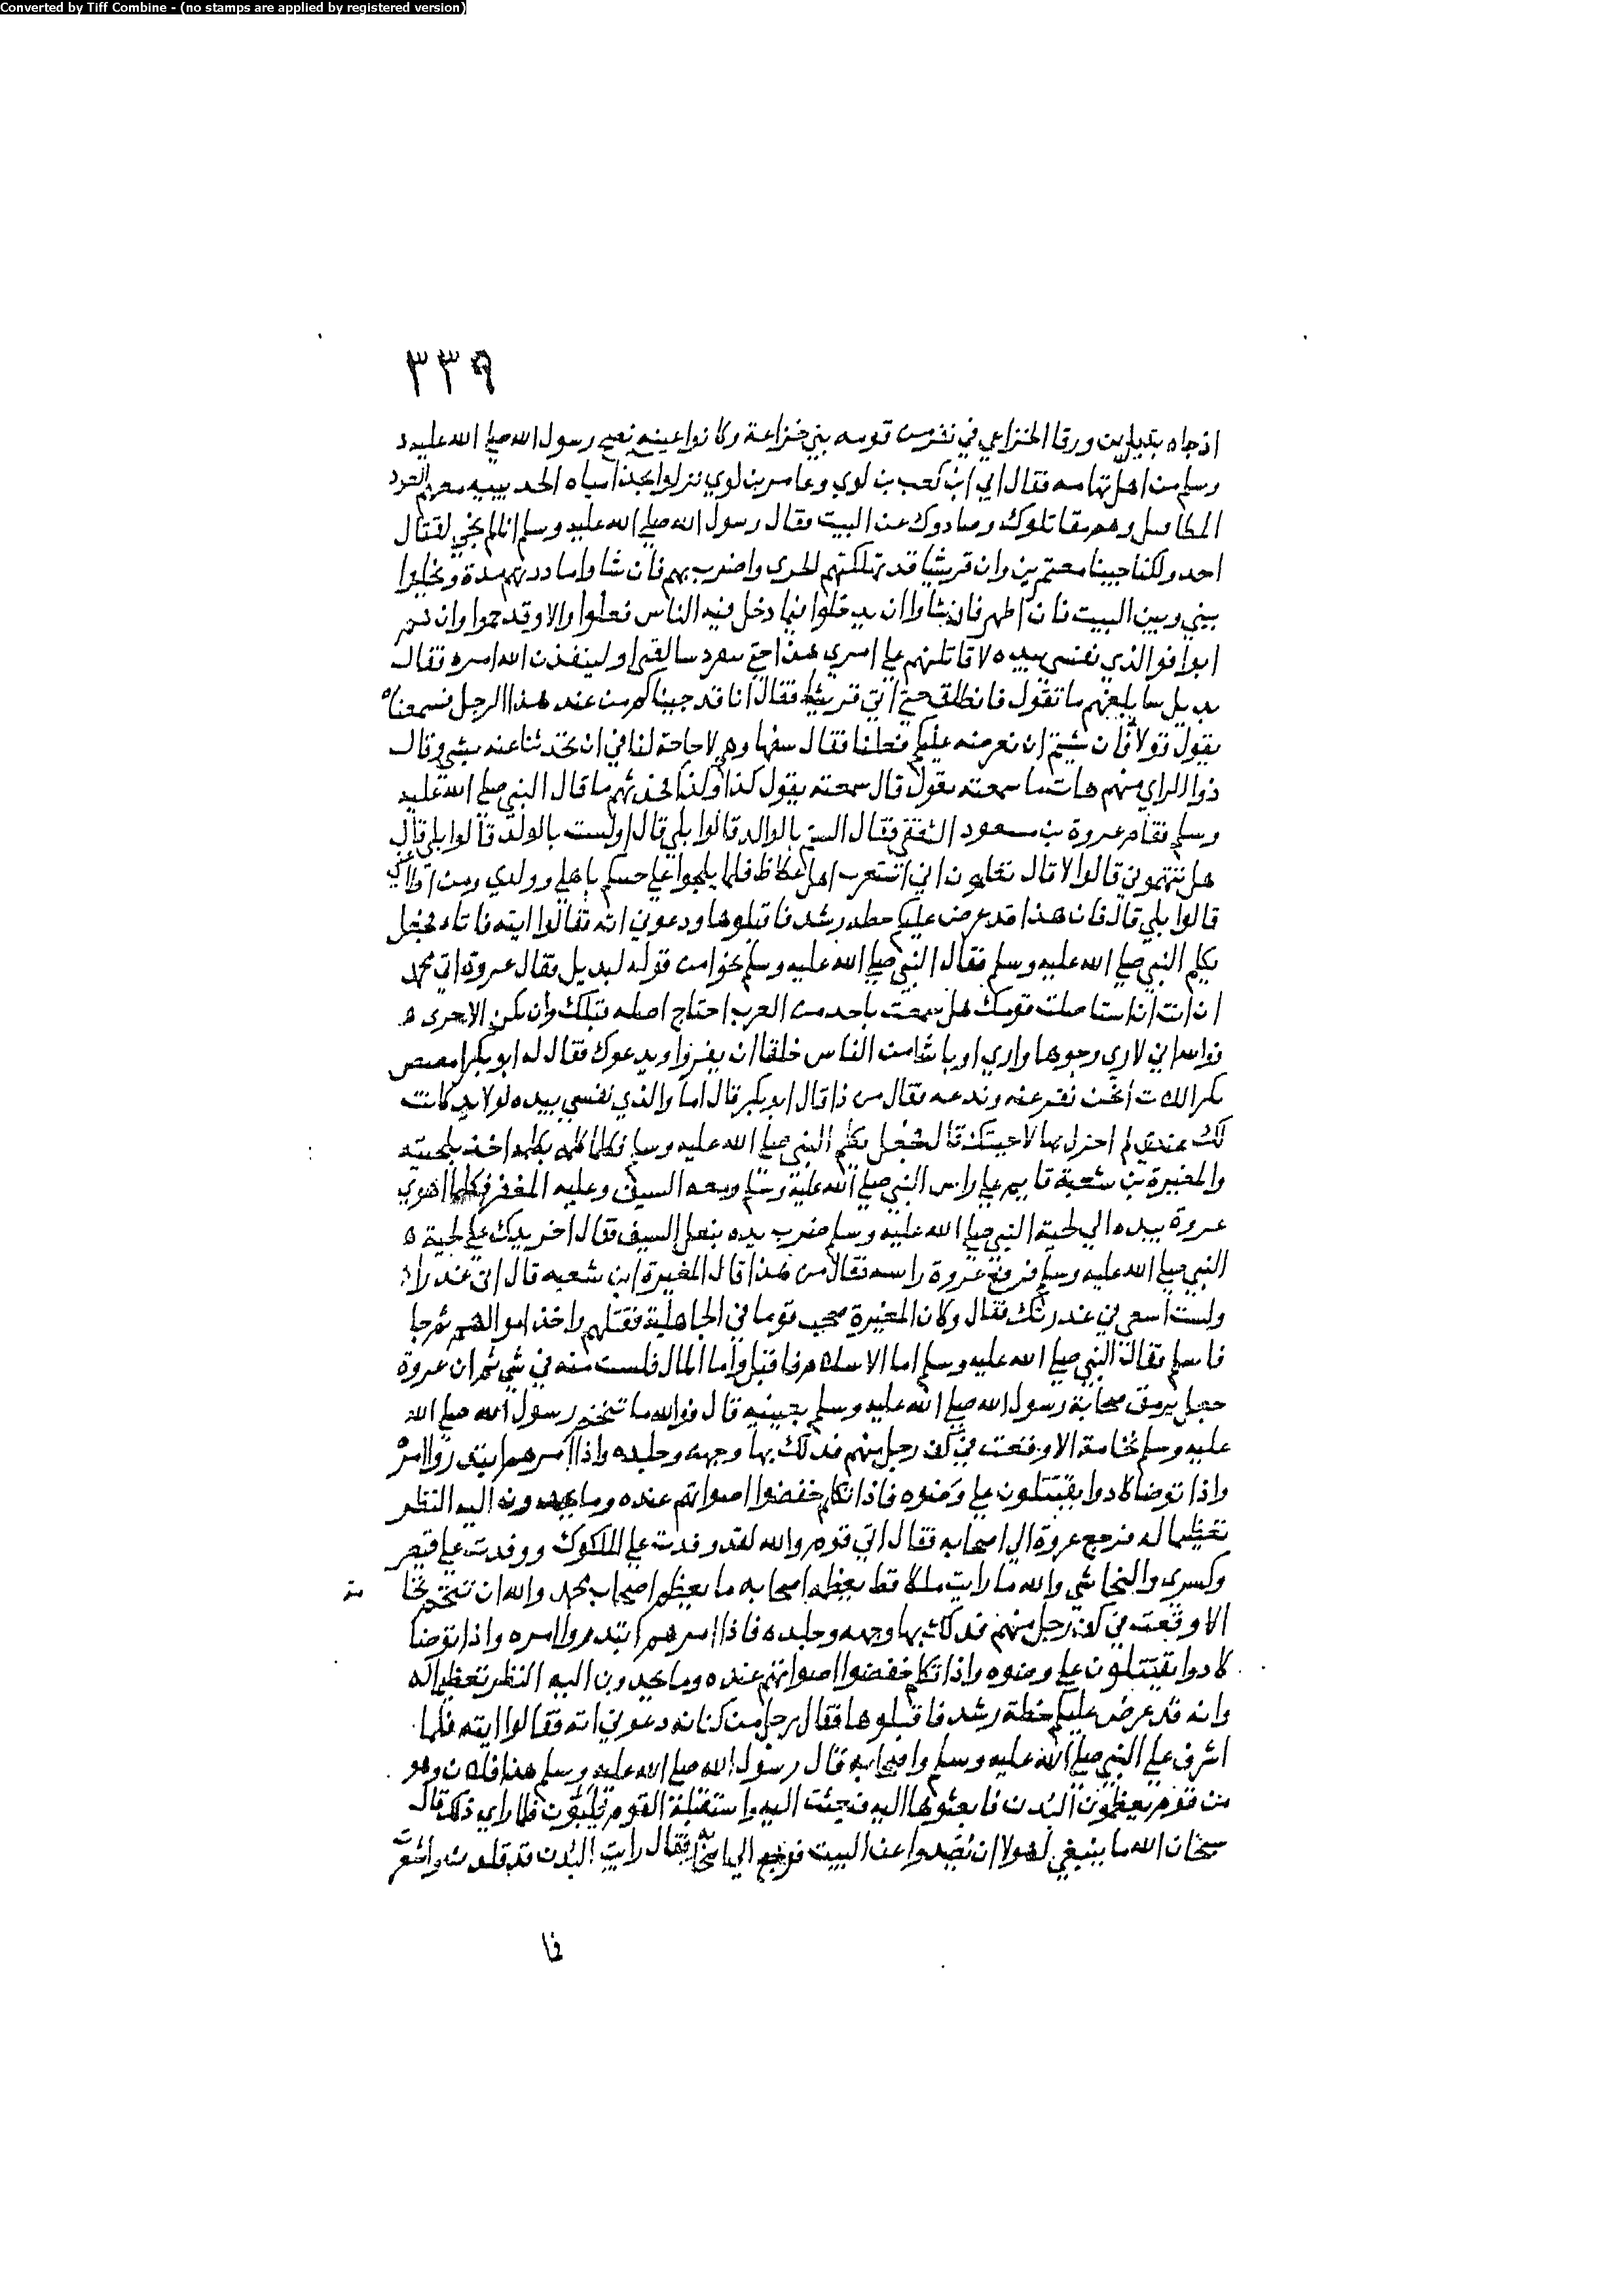 Converted by Tiff Combine - (no stamps are applied by registered version)
٣٣٩
اذ جاه بديل بن ورقا الخزاعي في نفر من قومه بني خزاعة وكانوا عيبة نصح رسول الله صلي الله عليه و
وسلم من اهل تهامه فقال اني ان كعب بن لوي وعامر بن لوي نزلوا بجدا مياه الحديبيه معهم العود
المطافيل وهم مقاتلوك وصادوك عن البيت فقال رسول الله صلي الله عليه وسلم انا لم نجي لقتال
احد ولكنا جينا معتمرين وان قريشا قد نهكتهم الحرب واضرب بهم فان شاوا ماددتهم مدة ويخلوا
بيني وبين البيت فان اظهر فان شاوا ان يدخلوا فيما دخل فيه الناس فعلوا والا وقد جموا وان هم
ابوا فوالذي نفسي بيده لا قاتلنهم علي امري هذا حتي تنفرد سالفتي او لينفذن الله امره فقال
بديل سابلغهم ما تقول فانطلق حتي اتي قريشا فقال انا قد جيناكم من عند هذا الرجل فسمعناه
يقول قولا فان شيتم ان نعرضه عليكم فعلنا فقال سفهاوهم لا حاجة لنا في ان تحدثنا عنه بشي وقال
ذوا الراي منهم هات ما سمعته يقول قال سمعته يقول كذا وكذا فحدثهم ما قال النبي صلي الله عليه
وسلم فقام عروة بن مسعود الثقفي فقال الستم بالوالد قالوا بلي قال اولست بالولد قالوا بلي قال
هل تتهموني قالوا لا قال تعلمون اني استنفرت اهل عكاظ فلما بلحوا علي جيتكم باهلي وولدي ومن اطاعني
قالوا بلي قال فان هذا قد عرض عليكم خطه رشد فاقبلوها ودعوني اته فقالوا ايته فاتاه فجعل
يكلم النبي صلي الله عليه وسلم فقال النبي صلي الله عليه وسلم نحوا من قوله لبديل فقال عروة اي محمد
ان انت استاصلت قومك هل سمعت باحد من العرب احتاج اصله قبلك وان تكن الاخرى
فوالله اني لاري وجوها واري اوباشا من الناس خلقا ان يفروا ويدعوك فقال له ابو بكر امصص
بظر اللات انحن نفر عنه وندعه فقال من ذا قال ابو بكر قال اما والذي نفسي بيده لولا يد كانت
لك عندي لم اجزك بها لاجبتك قال فجعل يكلم النبي صلي الله عليه وسلم فكلما كلمه بكلمه اخذ بلحيته
والمغيرة بن شعبة قايم علي راس النبي صلي الله عليه وسلم ومعه السيف وعليه المغفر فكلما اهوي
عروة بيده الي لحية النبي صلي الله عليه وسلم ضرب يده بنعل السيف فقال اخر يدك علي لحية
النبي صلي الله عليه وسلم فرفع عروة راسه فقال من هذا قال المغيرة ابن شعبه قال اي غدر
ولست اسعي في غدرتك فقال وكان المغيرة صحب قوما في الجاهلية فقتلهم واخذ اموالهم ثم جا
فاسلم فقال النبي صلي الله عليه وسلم اما الاسلام فاقبل واما المال فلست منه في شي ثم ان عروة
جعل يرمق صحابة رسول الله صلي الله عليه وسلم بعينيه قال فوالله ما تنخم رسول الله صلي الله
عليه وسلم نخامة الا وقعت في كف رجل منهم فدلك بها وجهه وجلده واذا امرهم ابتدروا امره
واذا توضا كادوا يقتتلون علي وضوه فاذا تكلم خفضوا اصواتهم عنده وما يحدون اليه النظر
تعظيما له فرجع عروة الي اصحابه فقال اي قوم والله لقد وفدت علي الملوك ووفدت علي قيصر
وكسري والنجاشي والله ما رايت ملكا قط يعظمه اصحابه ما يعظم اصحاب محمد والله ان تنخم نخا
مة
الا وقعت في كف رجل منهم فدلك بها وجهه وجلده فاذا امرهم ابتدروا امره واذا توضا
كادوا يقتتلون علي وضوه واذا تكلم خفضوا اصواتهم عنده وما يحدون اليه النظر تعظيما له
وانه قد عرض عليكم خطة رشد فاقبلوها فقال رجل من كنانه دعوني اته فقالوا ايته فلما
اشرف علي النبي صلي الله عليه وسلم واصحابه قال رسول الله صلي الله عليه وسلم هذا فلان وهو
من قوم يعظمون البدن فابعثوها اليه فبعثت اليه واستقبله القوم يلبون فلما راي ذلك قال
سبحان الله ما ينبغي لهولا ان يصدوا عن البيت فرجع الي اصحابه فقال رايت البدن قد قلدت واشعرت
فا